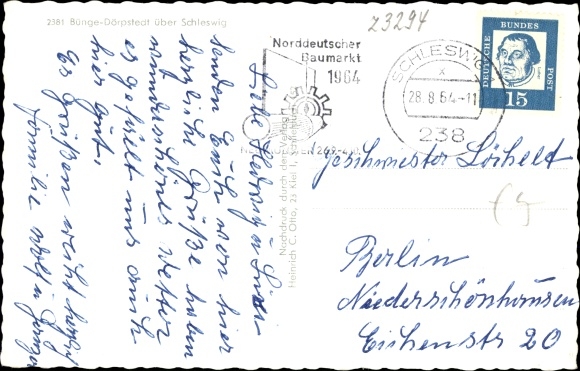 2381 Bünge-Dörpstedt über Schleswig
z3294
Norddeutscher
Baumarkt
1964
SCHLESWIG
x
28.8.64-11
238
DEUTSCHE BUNDES POST
15
Nachdruck durch den Verlag
Heinrich C. Otto, 23 Kiel 1,
Liebe Hedwig u.
senden Euch von hier
herzliche Grüße haben
wunderschönes Wetter
es gefällt uns auch
hier gut.
Es grüßen recht herzl.
Familie
Geschwister Löchelt
Berlin
Niederschönhausen
Eichenstr 20